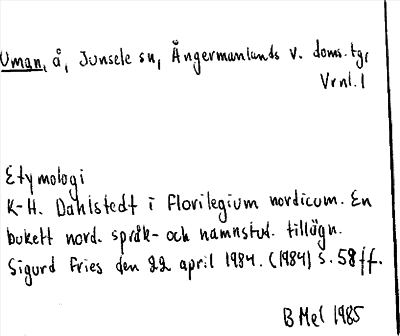 Uman, å, Junsele sn, Ångermanlands v. doms.tg,
Vrnl. 1
Etymologi
K-H. Dahlstedt i Florilegium nordicum. En
bukett nord. språk- och namnstud. tillägn.
Sigurd Fries den 22 april 1984. (1984) s. 58 ff.
B Mel 1985